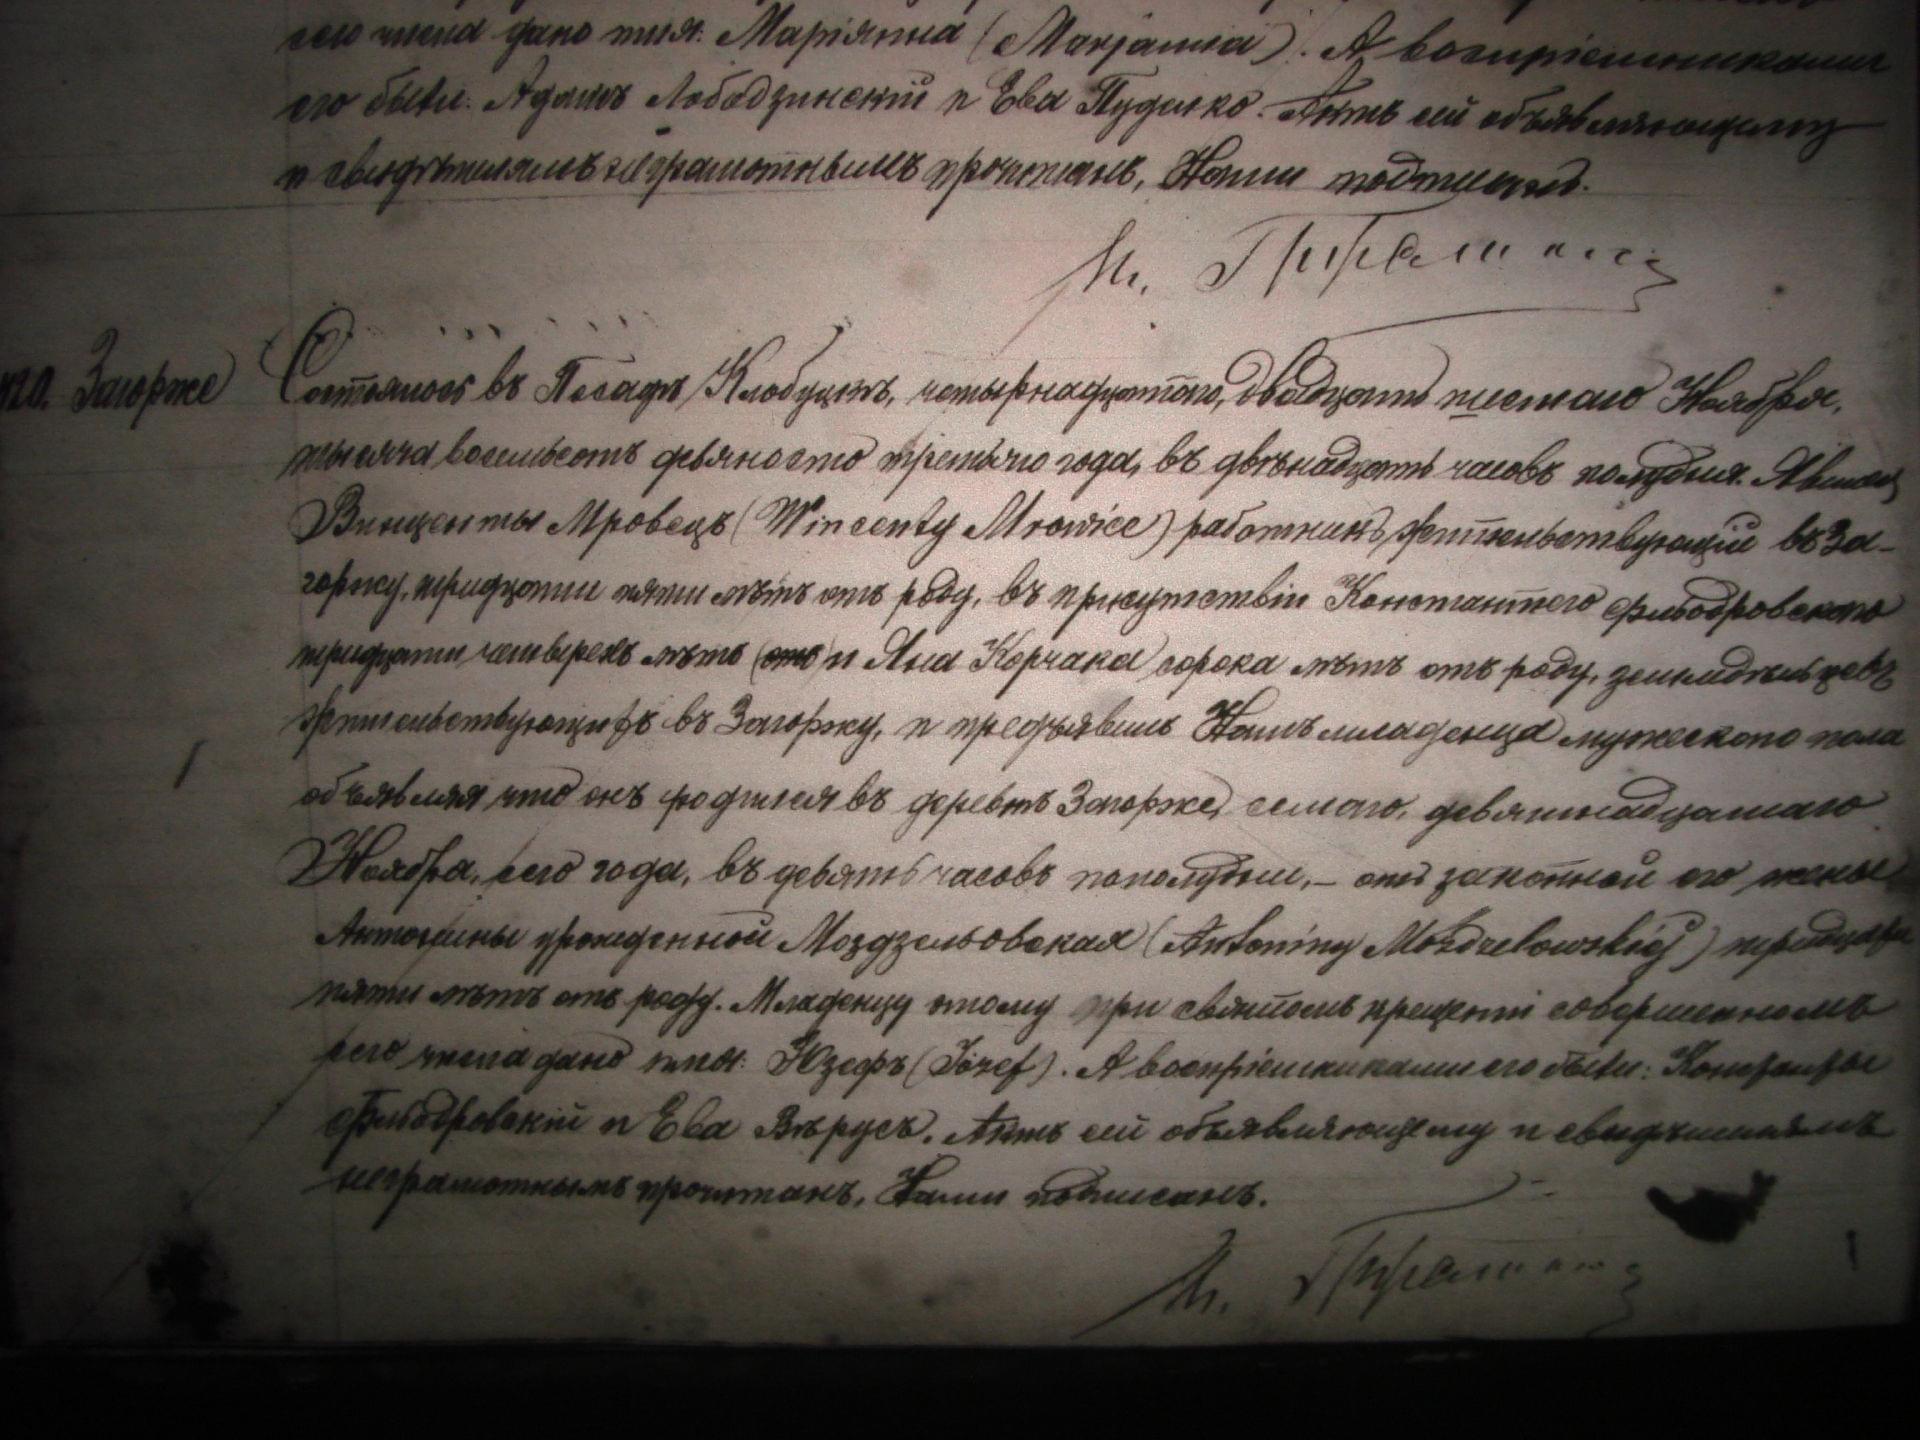 сего числа дано имя: Маріянна (Marjanna). А воспріемниками
его были: Адамъ Лободзинскій и Ева Пудилко. Актъ сей объявляющему
и свидѣтелямъ неграмотнымъ прочитанъ, Нами подписанъ.
420. Загорже
Состоялось въ Посадѣ Клобуцкѣ, четырнадцатого, двадцать шестаго Ноября,
тысяча восемьсотъ девяносто третьяго года, въ двѣнадцать часовъ полудня. Явился
Винценты Мровецъ (Wincenty Mrowiec) работникъ, жительствующій въ За-
горжу, тридцати пяти лѣтъ отъ роду, въ присутствіи Константего
тридцати четырехъ лѣтъ (отъ) и Яна Корчака сорока лѣтъ отъ роду, земледѣльцевъ
жительствующихъ въ Загоржу, и предъявилъ Намъ младенца мужескаго пола
объявляя что онъ родился въ деревнѣ Загорже, седмаго, девятнадцатаго
Ноября, сего года, въ девять часовъ пополудни, – отъ законной его жены
Антонины урожденной Моздзельовская (Antoniny Moździelowskiej) тридцати
пяти лѣтъ отъ роду. Младенцу этому при святомъ крещеніи совершенномъ
сего числа дано имя: Юзефъ (Józef). А воспріемниками его были: Константы
и Ева Вѣрусъ. Актъ сей объявляющему и свидѣтелямъ
неграмотнымъ прочитанъ, Нами подписанъ.